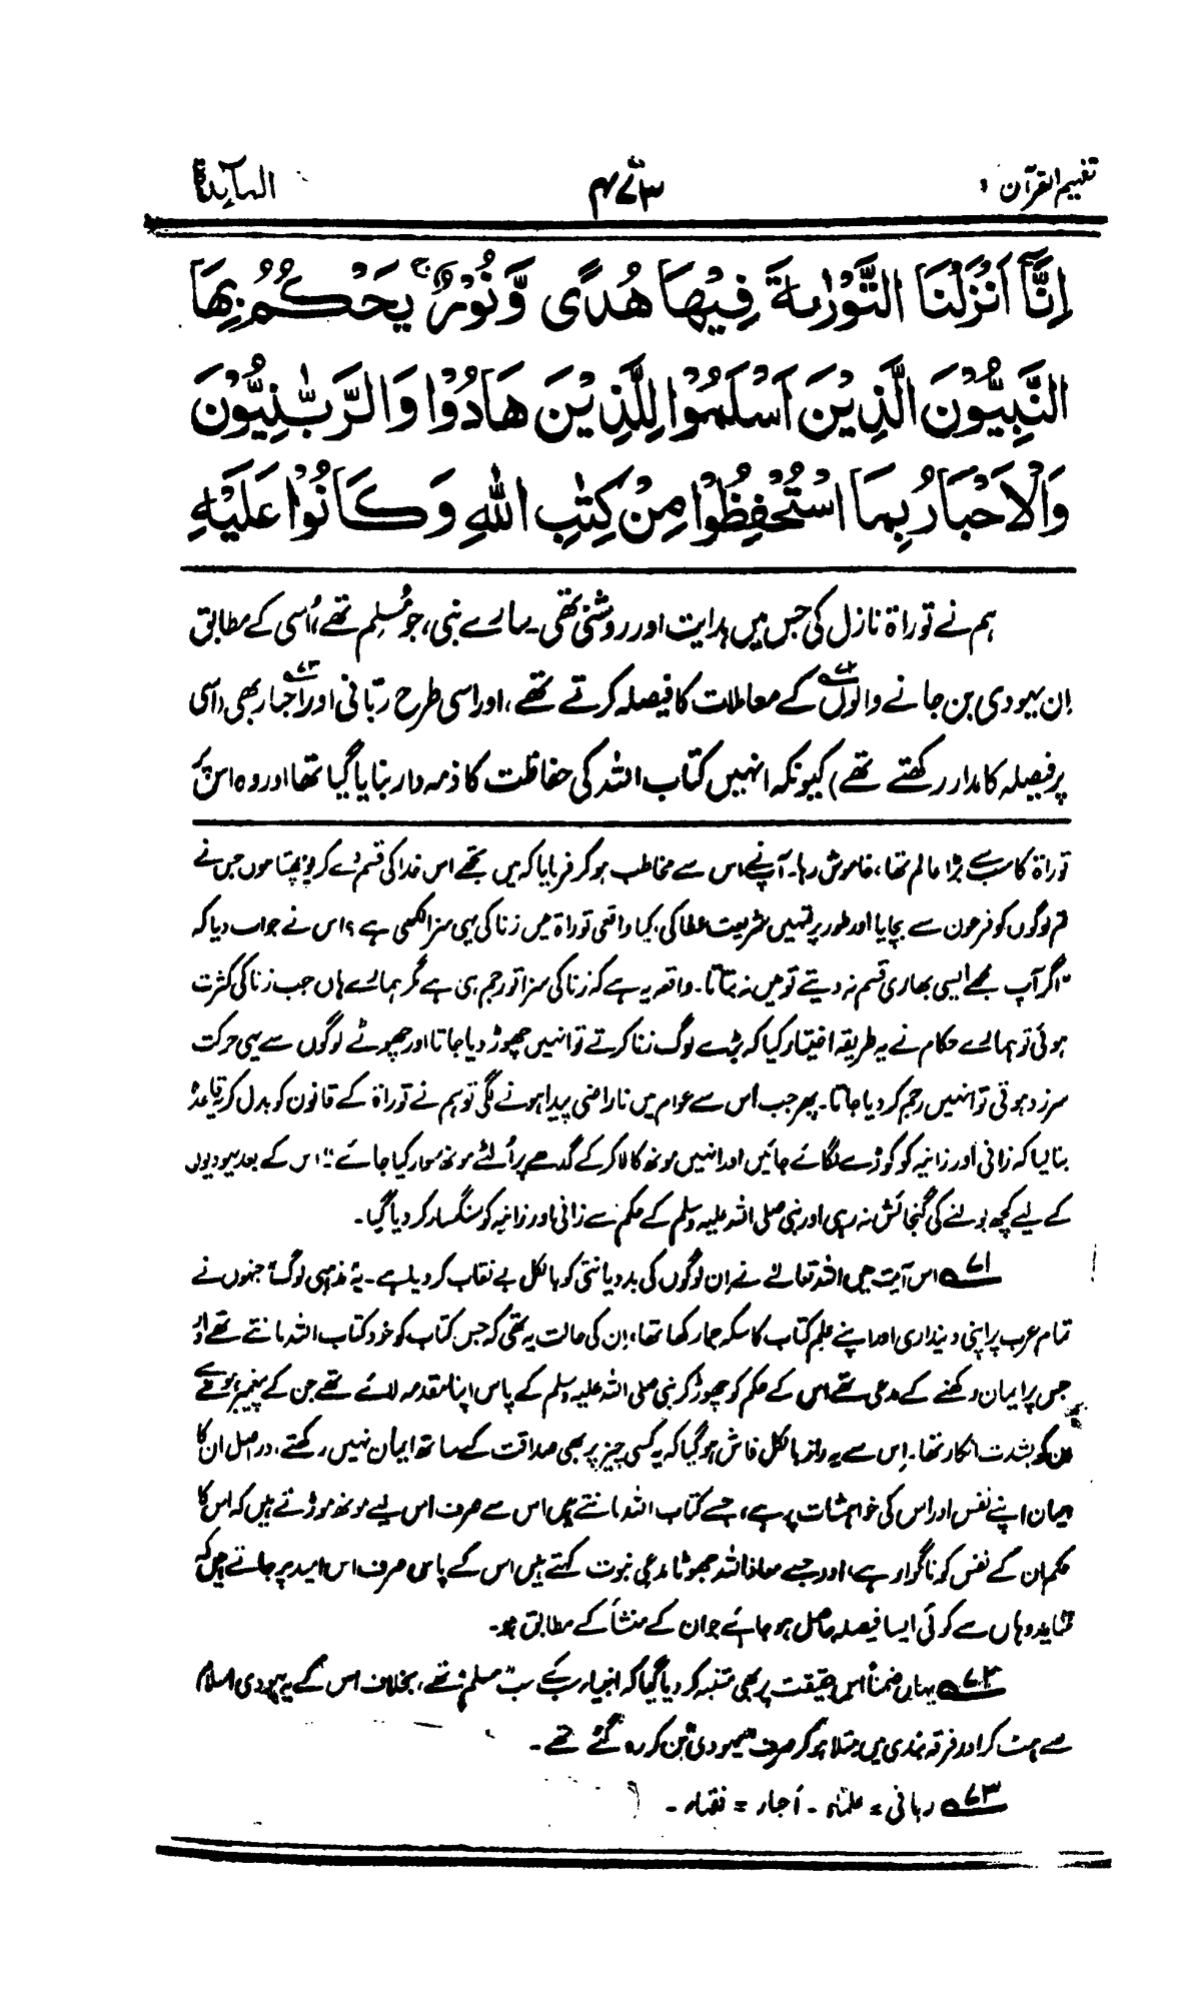 تفہیم القرآن ۱
۴۷۳
المآئدۃ
اِنَّاۤ اَنْزَلْنَا التَّوْرٰىةَ فِيْهَا هُدًى وَّ نُوْرٌ ۚ يَحْكُمُ بِهَا
النَّبِيُّوْنَ الَّذِيْنَ اَسْلَمُوْا لِلَّذِيْنَ هَادُوْا وَالرَّبّٰنِيُّوْنَ
وَالْاَحْبَارُ بِمَا اسْتُحْفِظُوْا مِنْ كِتٰبِ اللّٰهِ وَكَانُوْا عَلَيْهِ
ہم نے توراۃ نازل کی جس میں ہدایت اور روشنی تھی۔ سارے نبی، جو مُسلِم تھے، اُسی کے مطابق
اِن یہودی بن جانے والوں۷۲ کے معاملات کا فیصلہ کرتے تھے، اور اسی طرح ربّانی اور احبار۷۳ بھی (اسی
پر فیصلہ کا مدار رکھتے تھے) کیونکہ انہیں کتاب اللہ کی حفاظت کا ذمہ دار بنایا گیا تھا اور وہ اس پر
توراۃ کا سب سے بڑا عالم تھا، خاموش رہا۔ آپ نے اس سے مخاطب ہو کر فرمایا کہ میں تجھے اس خدا کی قسم دے کر پوچھتا ہوں جس نے
تم لوگوں کو فرعون سے بچایا اور طور پر تمہیں شریعت عطا کی، کیا واقعی توراۃ میں زنا کی یہی سزا لکھی ہے؟ اس نے جواب دیا کہ
"اگر آپ مجھے ایسی بھاری قسم نہ دیتے تو میں نہ بتاتا۔ واقعہ یہ ہے کہ زنا کی سزا تو رجم ہی ہے مگر ہمارے ہاں جب زنا کی کثرت
ہوئی تو ہمارے حکام نے یہ طریقہ اختیار کیا کہ بڑے لوگ زنا کرتے تو انہیں چھوڑ دیا جاتا اور چھوٹے لوگوں سے یہی حرکت
سرزد ہوتی تو انہیں رجم کر دیا جاتا۔ پھر جب اس سے عوام میں ناراضی پیدا ہونے لگی تو ہم نے توراۃ کے قانون کو بدل کر یہ قاعدہ
بنا لیا کہ زانی اور زانیہ کو کوڑے لگائے جائیں اور انہیں مونھ کالا کر کے گدھے پر اُلٹے مونھ سوار کیا جائے"۔ اس کے بعد یہودیوں
کے لیے کچھ بولنے کی گنجائش نہ رہی اور نبی صلی اللہ علیہ وسلم کے حکم سے زانی اور زانیہ کو سنگسار کر دیا گیا۔
۷۱ اس آیت میں اللہ تعالیٰ نے اِن لوگوں کی بددیانتی کو بالکل بے نقاب کر دیا ہے۔ یہ "مذہبی لوگ" جنہوں نے
تمام عرب پر اپنی دینداری اور اپنے علمِ کتاب کا سکہ جما رکھا تھا، اِن کی حالت یہ تھی کہ جس کتاب کو خود کتاب اللہ مانتے تھے اور
جس پر ایمان رکھنے کے مدعی تھے اس کے حکم کو چھوڑ کر نبی صلی اللہ علیہ وسلم کے پاس اپنا مقدمہ لائے تھے جن کے پیغمبر ہونے سے
ان کو بشدت انکار تھا۔ اِس سے یہ راز بالکل فاش ہو گیا کہ یہ کسی چیز پر بھی صداقت کے ساتھ ایمان نہیں رکھتے، دراصل ان کا
ایمان اپنے نفس اور اس کی خواہشات پر ہے، جسے کتاب اللہ مانتے ہیں اس سے صرف اس لیے مونھ موڑتے ہیں کہ اس کا
حکم ان کے نفس کو ناگوار ہے، اور جسے معاذ اللہ جھوٹا مدعی نبوت کہتے ہیں اس کے پاس صرف اس امید پر جاتے ہیں کہ
شاید وہاں سے کوئی ایسا فیصلہ حاصل ہو جائے جو ان کے منشأ کے مطابق ہو۔
۷۲ یہاں ضمناً اس حقیقت پر بھی متنبہ کر دیا گیا کہ انبیاء سب کے سب "مسلم" تھے، بخلاف اس کے یہ یہودی اسلام
سے ہٹ کر اور فرقہ بندی میں مبتلا ہو کر صرف "یہودی" بن کر رہ گئے تھے۔
۷۳ ربانی = علماء۔ اَحبار = فقہاء۔